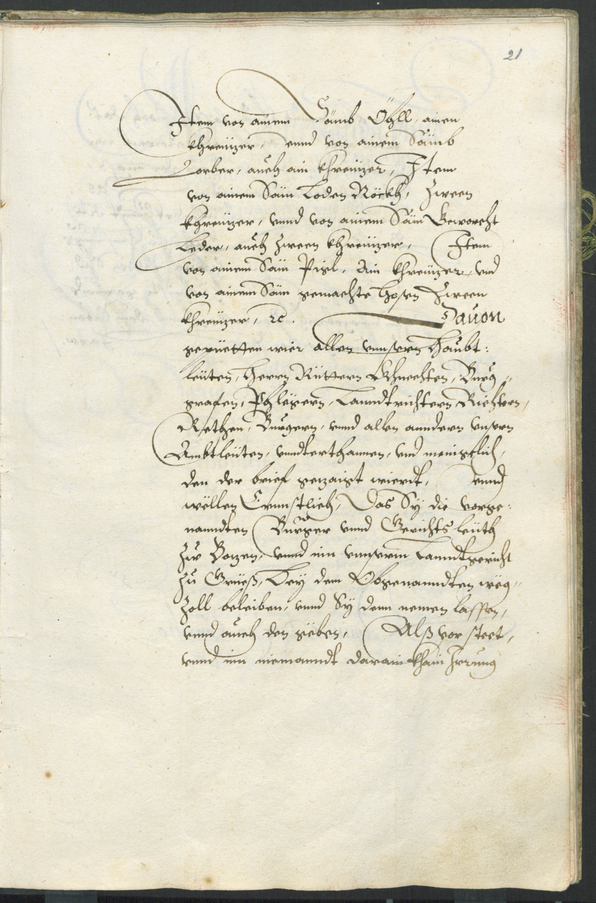 21
Item von ainem Sämb Öhll, ainen
khreuzer, vnnd von ainem Sämb
Lorber, auch ain khreuzer, Item
von ainem Säm Loden Röckh, Zween
khreuzer, vnnd von ainem Säm Geworcht
Leder, auch Zween khreuzer, Item
von ainem Säm Pixl, Ain khreuzer, vnd
von ainem Säm gemachte hosen Zween
khreuzer, ꝛc. Dauon
gepietten wier allen vnnsern haubt:
leüten, herrn Rüttern Khnechten, Burg,
grafen, Phlegern, Lanndtrichtern, Richtern,
Räthen, Burgern, vnnd allen anndern vnsern
Ambtleüten, vnndterthannen, vnd meniglich,
den der brief gezaigt wierdt, vnnd
wöllen Ernnstlich, Das Sy die vorge:
nanndten Burger vnnd Gerichts leüth
Zu Bozen, vnnd im vnnserm Lanndtgericht
Zu Grieß, Bey dem Obgenanndten weg,,
Zoll beleiben, vnnd Sy denn nemen lassen,
vnnd auch den geben, Alß vor steet,
vnnd inn niemanndt darain khain Irrung